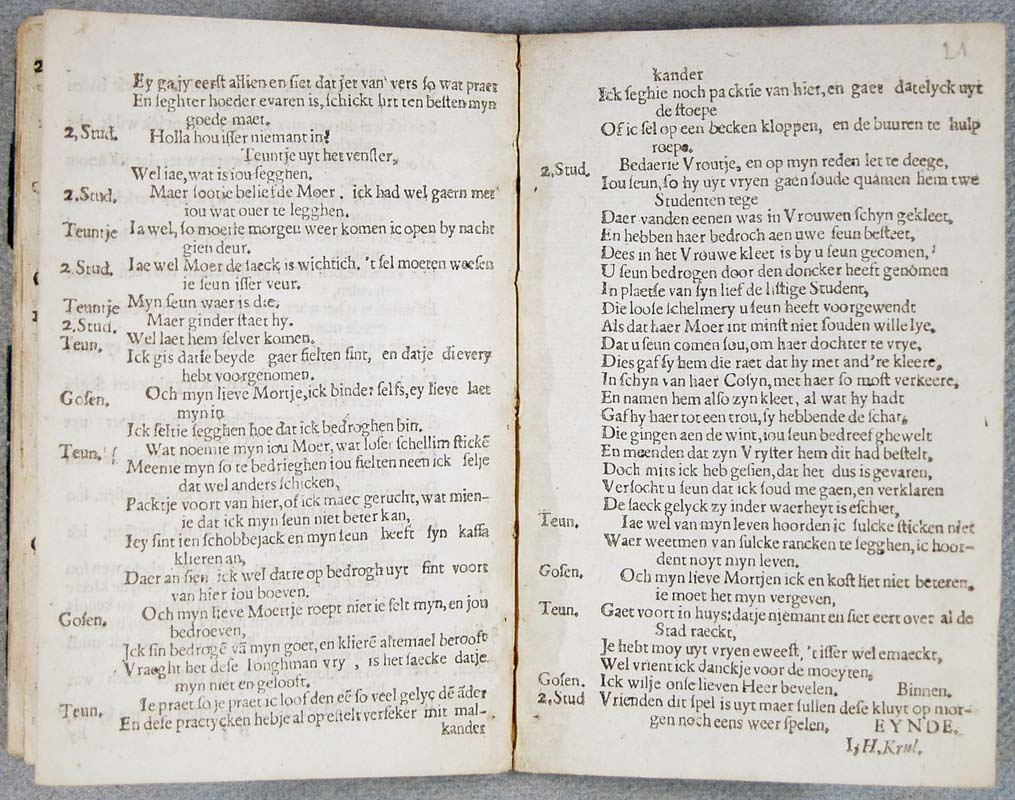 Ey ga jy eerst allien en siet dat jet van vers so wat praet
En seghter hoeder evaren is, schickt hrt ten besten myn
goede maet.
2, Stud. Holla hou isser niemant in?
Teuntje uyt het venster,
Wel iae, wat is iou segghen.
2. Stud. Maer sootie belief de Moer. ick had wel gaern met
iou wat ouer te legghen.
Teuntje Ia wel, so moetie morgen weer komen ic open by nacht
gien deur.
2 Stud. Iae wel Moer de saeck is wichtich. 't sel moeten weesen
ie seun isser veur.
Teuntje Myn seun waer is die.
2. Stud. Maer ginder staet hy.
Teun. Wel laet hem selver komen.
Ick gis datse beyde gaer fielten sint, en datje dievery
hebt voorgenomen.
Gosen. Och myn lieve Mortje, ick bindet selfs, ey lieve laet
myn in
Ick seltie segghen hoe dat ick bedroghen bin.
Teun. Wat noemje myn iou Moer, wat loser schellim stickē
Meenje myn so te bedrieghen iou fielten neen ick selje
dat wel anders schicken,
Packtje voort van hier, of ick maec gerucht, wat mien-
je dat ick myn seun niet beter kan,
Jey sint ien schobbejack en myn seun heeft syn kassa
klieren an,
Daer an sien ick wel datie op bedrogh uyt sint voort
van hier iou boeven.
Gosen. Och myn lieve Moertje roept niet ie selt myn, en jou
bedroeven,
Ick sin bedrogē vā myn goet, en klierē altemael berooft
Vraeght het dese Ionghman vry, is het saecke datje
myn niet en gelooft.
Teun. Ie praet so je praet ic loof den eē so veel gelyc dē āder
En dese practycken hebje al op estelt verseker mit mal-
kander
21
kander
Ick seghie noch packtie van hier, en gaet datelyck uyt
de stoepe
Of ic sel op een becken kloppen, en de buuren te hulp
roepe.
2, Stud. Bedaerie Vroutje, en op myn reden let te deege,
Iou seun, so hy uyt vryen gaen soude quamen hem twe
Studenten tege
Daer vanden eenen was in Vrouwen schyn gekleet,
En hebben haer bedroch aen uwe seun besteet,
Dees in het Vrouwe kleet is by u seun gecomen,
U seun bedrogen door den doncker heeft genomen
In plaetse van syn lief de listige Student,
Die loose schelmery u seun heeft voorgewendt
Als dat haer Moer int minst niet souden wille lye,
Dat u seun comen sou, om haer dochter te vrye,
Dies gaf sy hem die raet dat hy met and're kleere,
In schyn van haer Cosyn, met haer so most verkeere,
En namen hem also zyn kleet, al wat hy hadt
Gaf hy haer tot een trou, sy hebbende de schat,
Die gingen aen de wint, iou seun bedreef ghewelt
En meenden dat zyn Vryster hem dit had bestelt,
Doch mits ick heb gesien, dat het dus is gevaren,
Versocht u seun dat ick soud me gaen, en verklaren
De saeck gelyck zy inder waerheyt is eschiet,
Teun. Iae wel van myn leven hoorden ic sulcke sticken niet
Waer weetmen van sulcke rancken te segghen, ic hoor-
dent noyt myn leven.
Gosen. Och myn lieve Mortjen ick en kost het niet beteren,
ie moet het myn vergeven,
Teun. Gaet voort in huys; datje niemant en siet eert over al de
Stad raeckt,
Je hebt moy uyt vryen eweest, 't isser wel emaeckt,
Wel vrient ick danckje voor de moeyten,
Gosen. Ick wilje onse lieven Heer bevelen. Binnen.
2. Stud Vrienden dit spel is uyt maer sullen dese kluyt op mor-
gen noch eens weer spelen, EYNDE.
I, H. Krul.